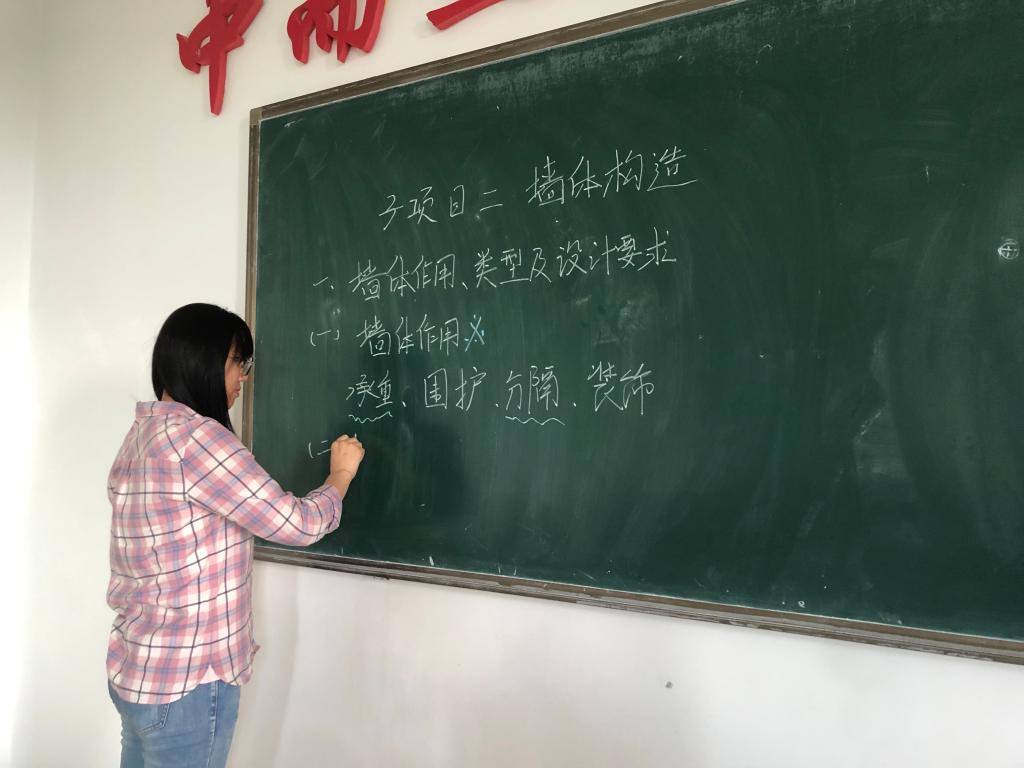 子项目二 墙体构造
一、墙体作用、类型及设计要求
(一) 墙体作用.
承重、围护、分隔、装饰
(二